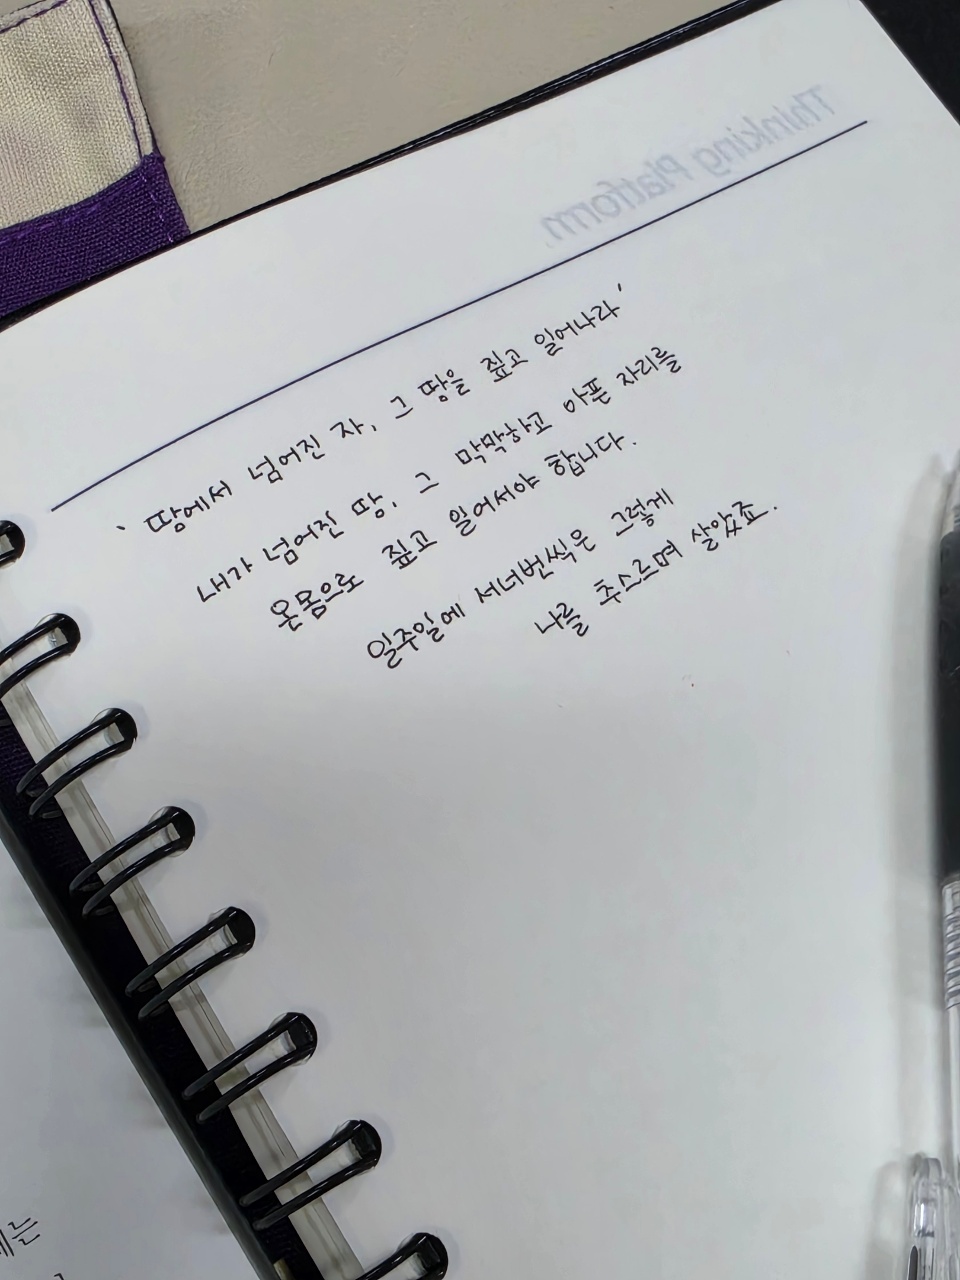 Thinking Platform
'땅에서 넘어진 자, 그 땅을 짚고 일어나라'
내가 넘어진 땅, 그 막막하고 아픈 자리를
온몸으로 짚고 일어서야 합니다.
일주일에 서너번씩은 그렇게
나를 추스르며 살았죠.
는